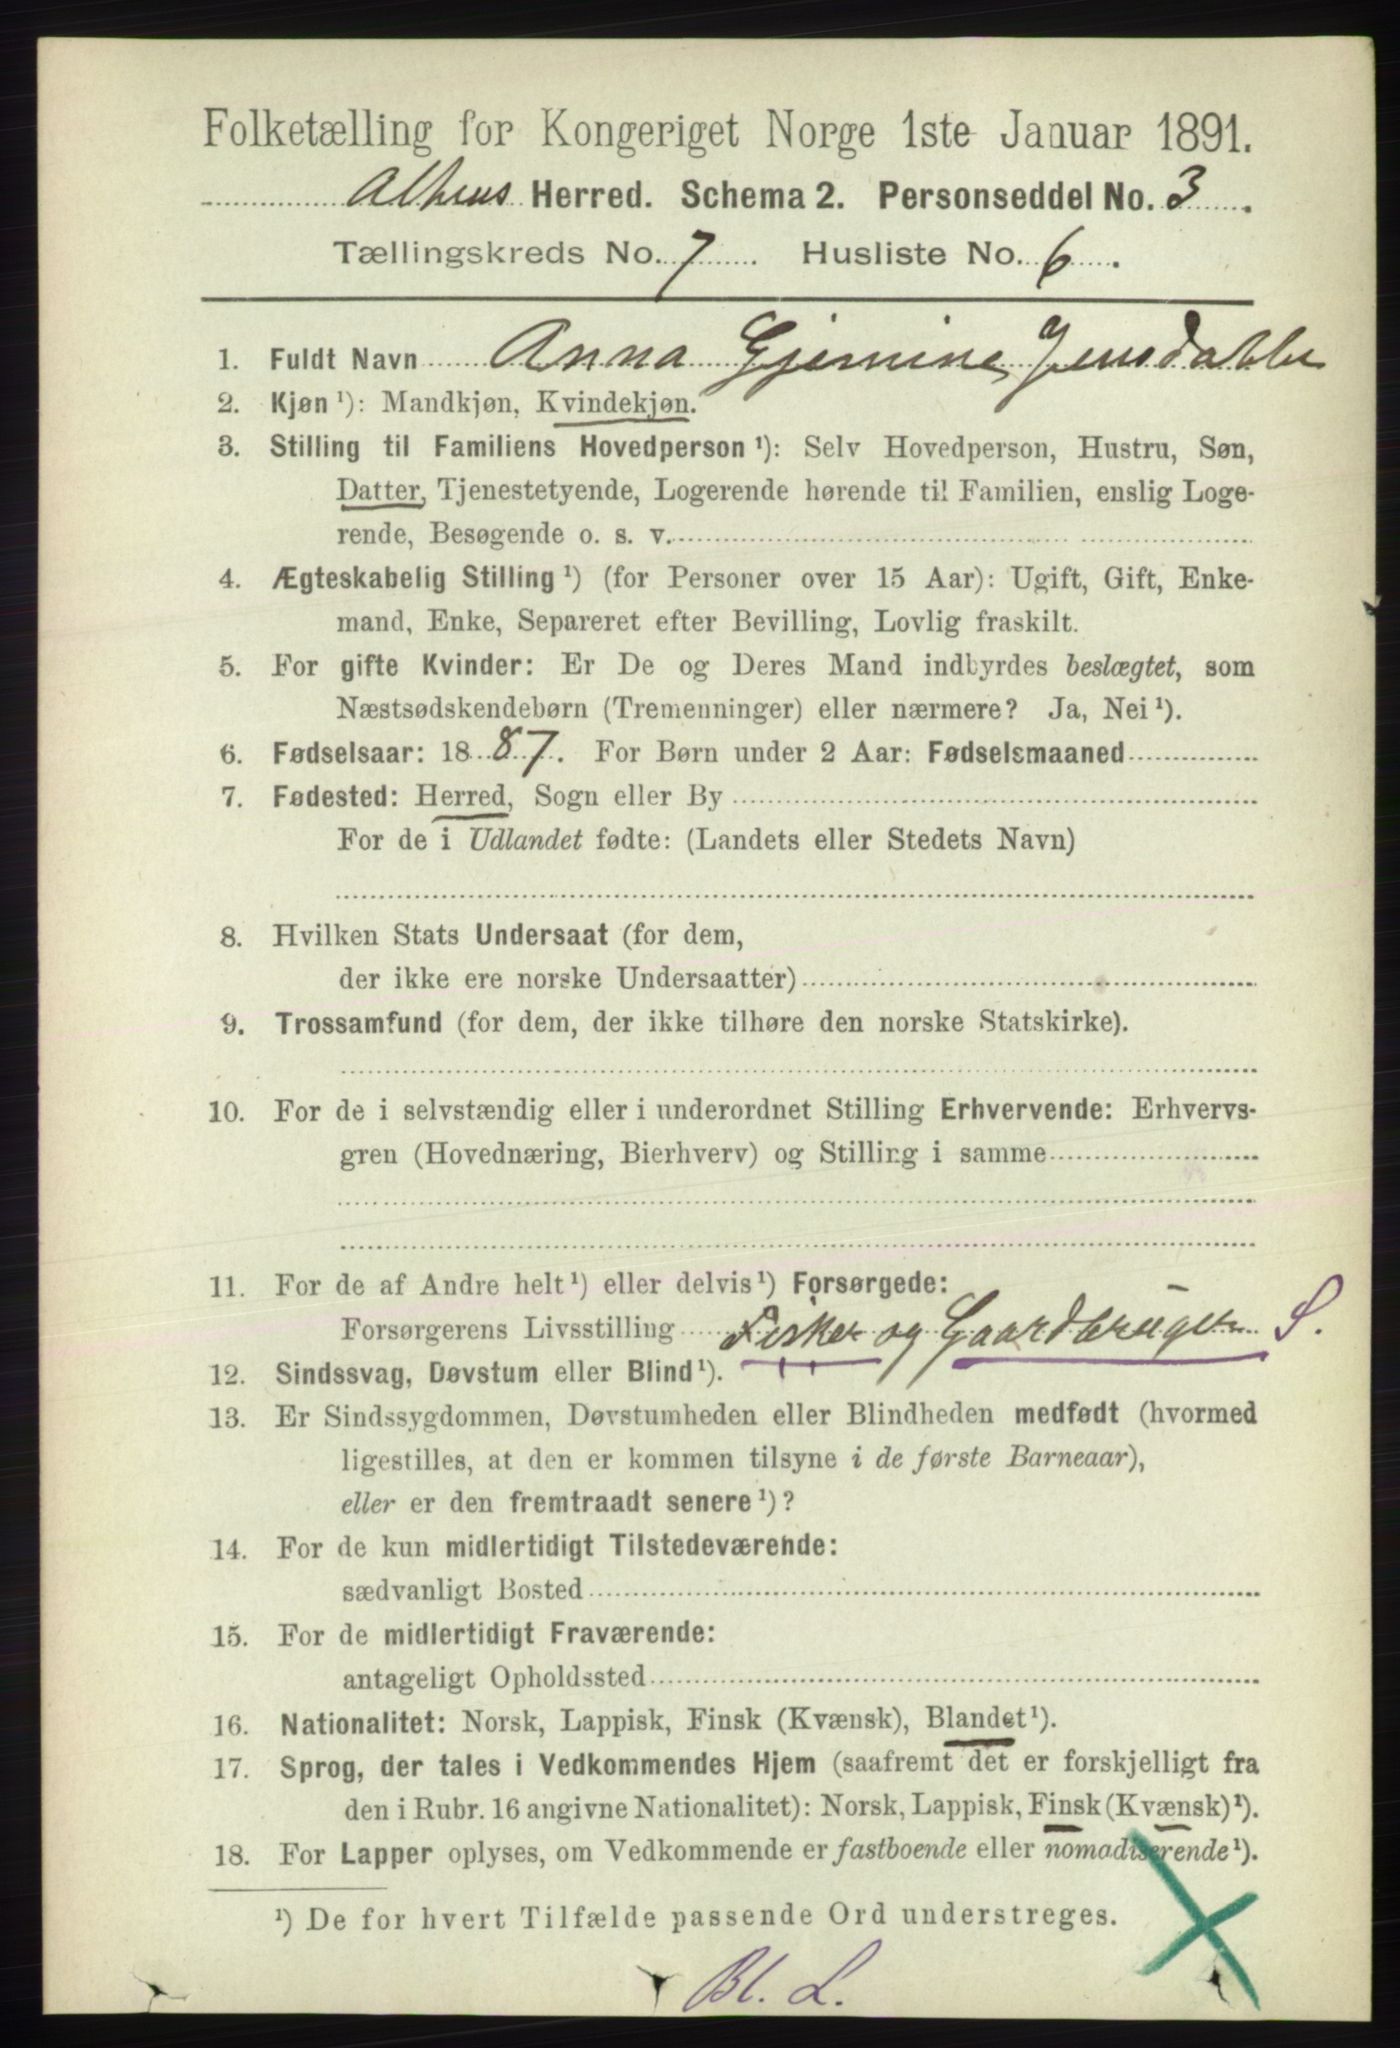 Folketælling for Kongeriget Norge 1ste Januar 1891.
Altens Herred. Schema 2. Personseddel No. 3.
Tællingskreds No. 7. Husliste No. 6.
1. Fuldt Navn Anna Gjernine Jensdatter
2. Kjøn ¹): Mandkjøn, Kvindekjøn.
3. Stilling til Familiens Hovedperson ¹): Selv Hovedperson, Hustru, Søn,
Datter, Tjenestetyende, Logerende hørende til Familien, enslig Loge-
rende, Besøgende o. s. v.
4. Ægteskabelig Stilling ¹) (for Personer over 15 Aar): Ugift, Gift, Enke-
mand, Enke, Separeret efter Bevilling, Lovlig fraskilt.
5. For gifte Kvinder: Er De og Deres Mand indbyrdes beslægtet, som
Næstsødskendebørn (Tremenninger) eller nærmere? Ja, Nei ¹).
6. Fødselsaar: 1887. For Børn under 2 Aar: Fødselsmaaned
7. Fødested: Herred, Sogn eller By
For de i Udlandet fødte: (Landets eller Stedets Navn)
8. Hvilken Stats Undersaat (for dem,
der ikke ere norske Undersaatter)
9. Trossamfund (for dem, der ikke tilhøre den norske Statskirke).
10. For de i selvstændig eller i underordnet Stilling Erhvervende: Erhvervs-
gren (Hovednæring, Bierhverv) og Stilling i samme
11. For de af Andre helt ¹) eller delvis ¹) Forsørgede:
Forsørgerens Livsstilling Fisker og Gaardbruger S.
12. Sindssvag, Døvstum eller Blind ¹).
13. Er Sindssygdommen, Døvstumheden eller Blindheden medfødt (hvormed
ligestilles, at den er kommen tilsyne i de første Barneaar),
eller er den fremtraadt senere ¹)?
14. For de kun midlertidigt Tilstedeværende:
sædvanligt Bosted
15. For de midlertidigt Fraværende:
antageligt Opholdssted
16. Nationalitet: Norsk, Lappisk, Finsk (Kvænsk), Blandet ¹).
17. Sprog, der tales i Vedkommendes Hjem (saafremt det er forskjelligt fra
den i Rubr. 16 angivne Nationalitet): Norsk, Lappisk, Finsk (Kvænsk) ¹).
18. For Lapper oplyses, om Vedkommende er fastboende eller nomadiserende ¹).
¹) De for hvert Tilfælde passende Ord understreges.
Bl. L.